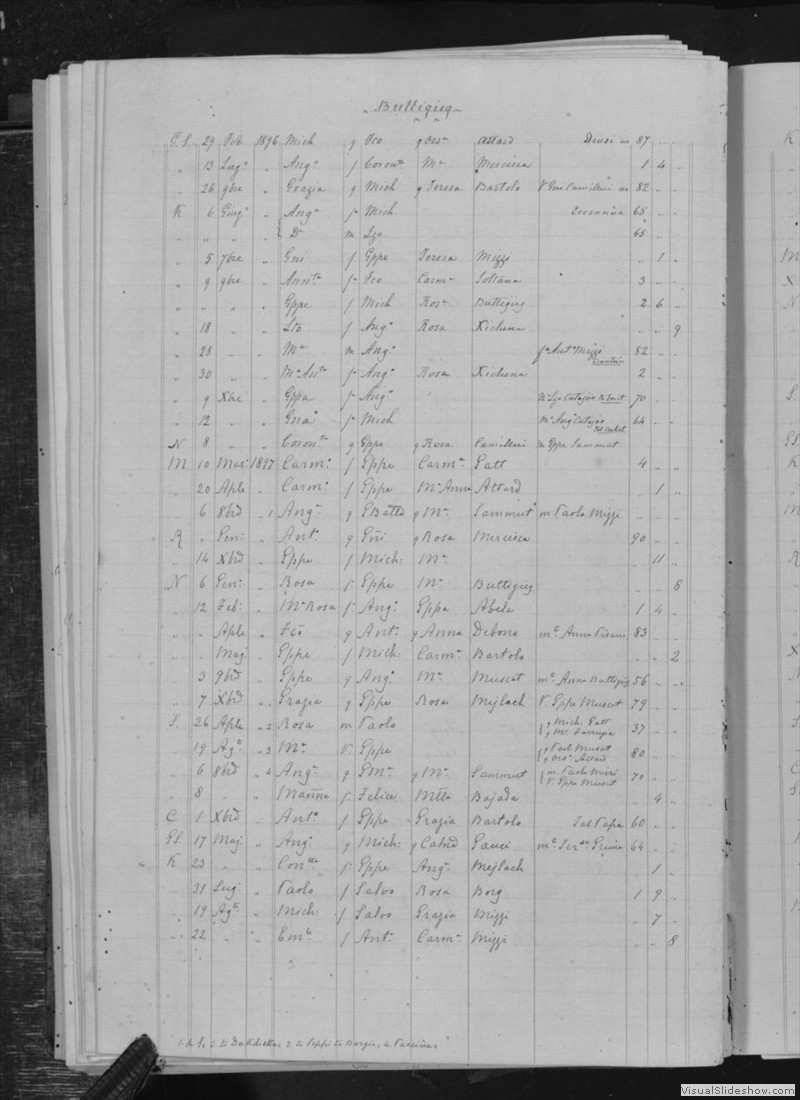 Buttigieg
G.S. 29 Feb 1896 Mich g Fco g Ros.a Attard 87
" 13 Lug.o " Ang.a f Coron.to M.a Mercieca 1 4 "
" 26 9bre " Grazia g Mich g Teresa Bartolo V Gius Camilleri 82
K 6 Giug.o " Ang.a f Mich. 65
" " " " D.a m Lzo 65
" 5 7bre " Gni f Gppe Teresa Mizzi " 1 "
" 9 9bre " Annt.a f Fco Carm.a Soltana 3 " "
" " " " Gppe f Mich Ros.a Buttigieg 2 6 "
" 18 " " f Ang.o Rosa Xicluna " " 9
" 28 " " M.a m Ang.o Ant.o Mizzi 82
" 30 " " M.a Ant.a f Ang.o Rosa Xicluna 2
" 9 Xbre " Gppa f Ang.o Lzo Cutajar 70
" 12 " " Gra.a f Mich M.a Ang.a Cutajar 64
N 8 " " Coron.ta g Gppe g Rosa Camilleri m Gppe Sammut
M 10 Mar: 1897 Carm: f Gppe Carm.a Gatt 4
" 20 Aple " Carm: f Gppe M.a Anna Attard " 1 "
" 6 8bre " 1 Ang.a g GBatta g M.a Sammut m Paolo Mizzi
R " Gen: " Ant.o g Gni g Rosa Mercieca 90
" 14 Xbre " Gppe f Mich: M.a " 11 "
N 6 Gen: " Rosa f Gppe M.a Buttigieg " " 8
" 12 Feb: " M.a Rosa f Ang.o Gppa Abela 1 4 "
" " Aple " Fco g Ant.o g Anna Debono m.o Anna 83
" " Mag: " Gppe f Mich: Carm.a Bartolo " " 2
" 3 9bre " Gppe g Ang.o M.a Muscat m.o Anna Buttigieg 56
" 7 Xbre " Grazia g Gppe Rosa Mejlach V. Gppe Muscat 79
S. 26 Aple " 2 Rosa m Paolo g Mich: Gatt g M.a Farrugia 37
" 19 Ag.o " 3 M.a V. Gppe g Paol Muscat g Ros.a Attard 80
" 6 8bre " 4 Ang.a g Em.le g M.a Sammut m Paolo Mizzi V. Gppe Muscat 70
" 8 " " Marina f Felice Mtta Bajada " 4 "
C 1 Xbre " Ant.o f Gppe Grazia Bartolo Tal Papa 60
GS. 17 Mag: " Ang.o g Mich: g Catnd Gauci m.o Ter.sa 64
K 23 " " f Gppe Ang.a Mejlach " 1 "
" 31 Lug: " Paolo f Salvo Rosa Borg 1 9 "
" 19 Ag.o " Mich f Salvo Grazia Mizzi " 7 "
" 22 " " Em.le f Ant.o Carm.a Mizzi " " 8
VisualSlideshow.com